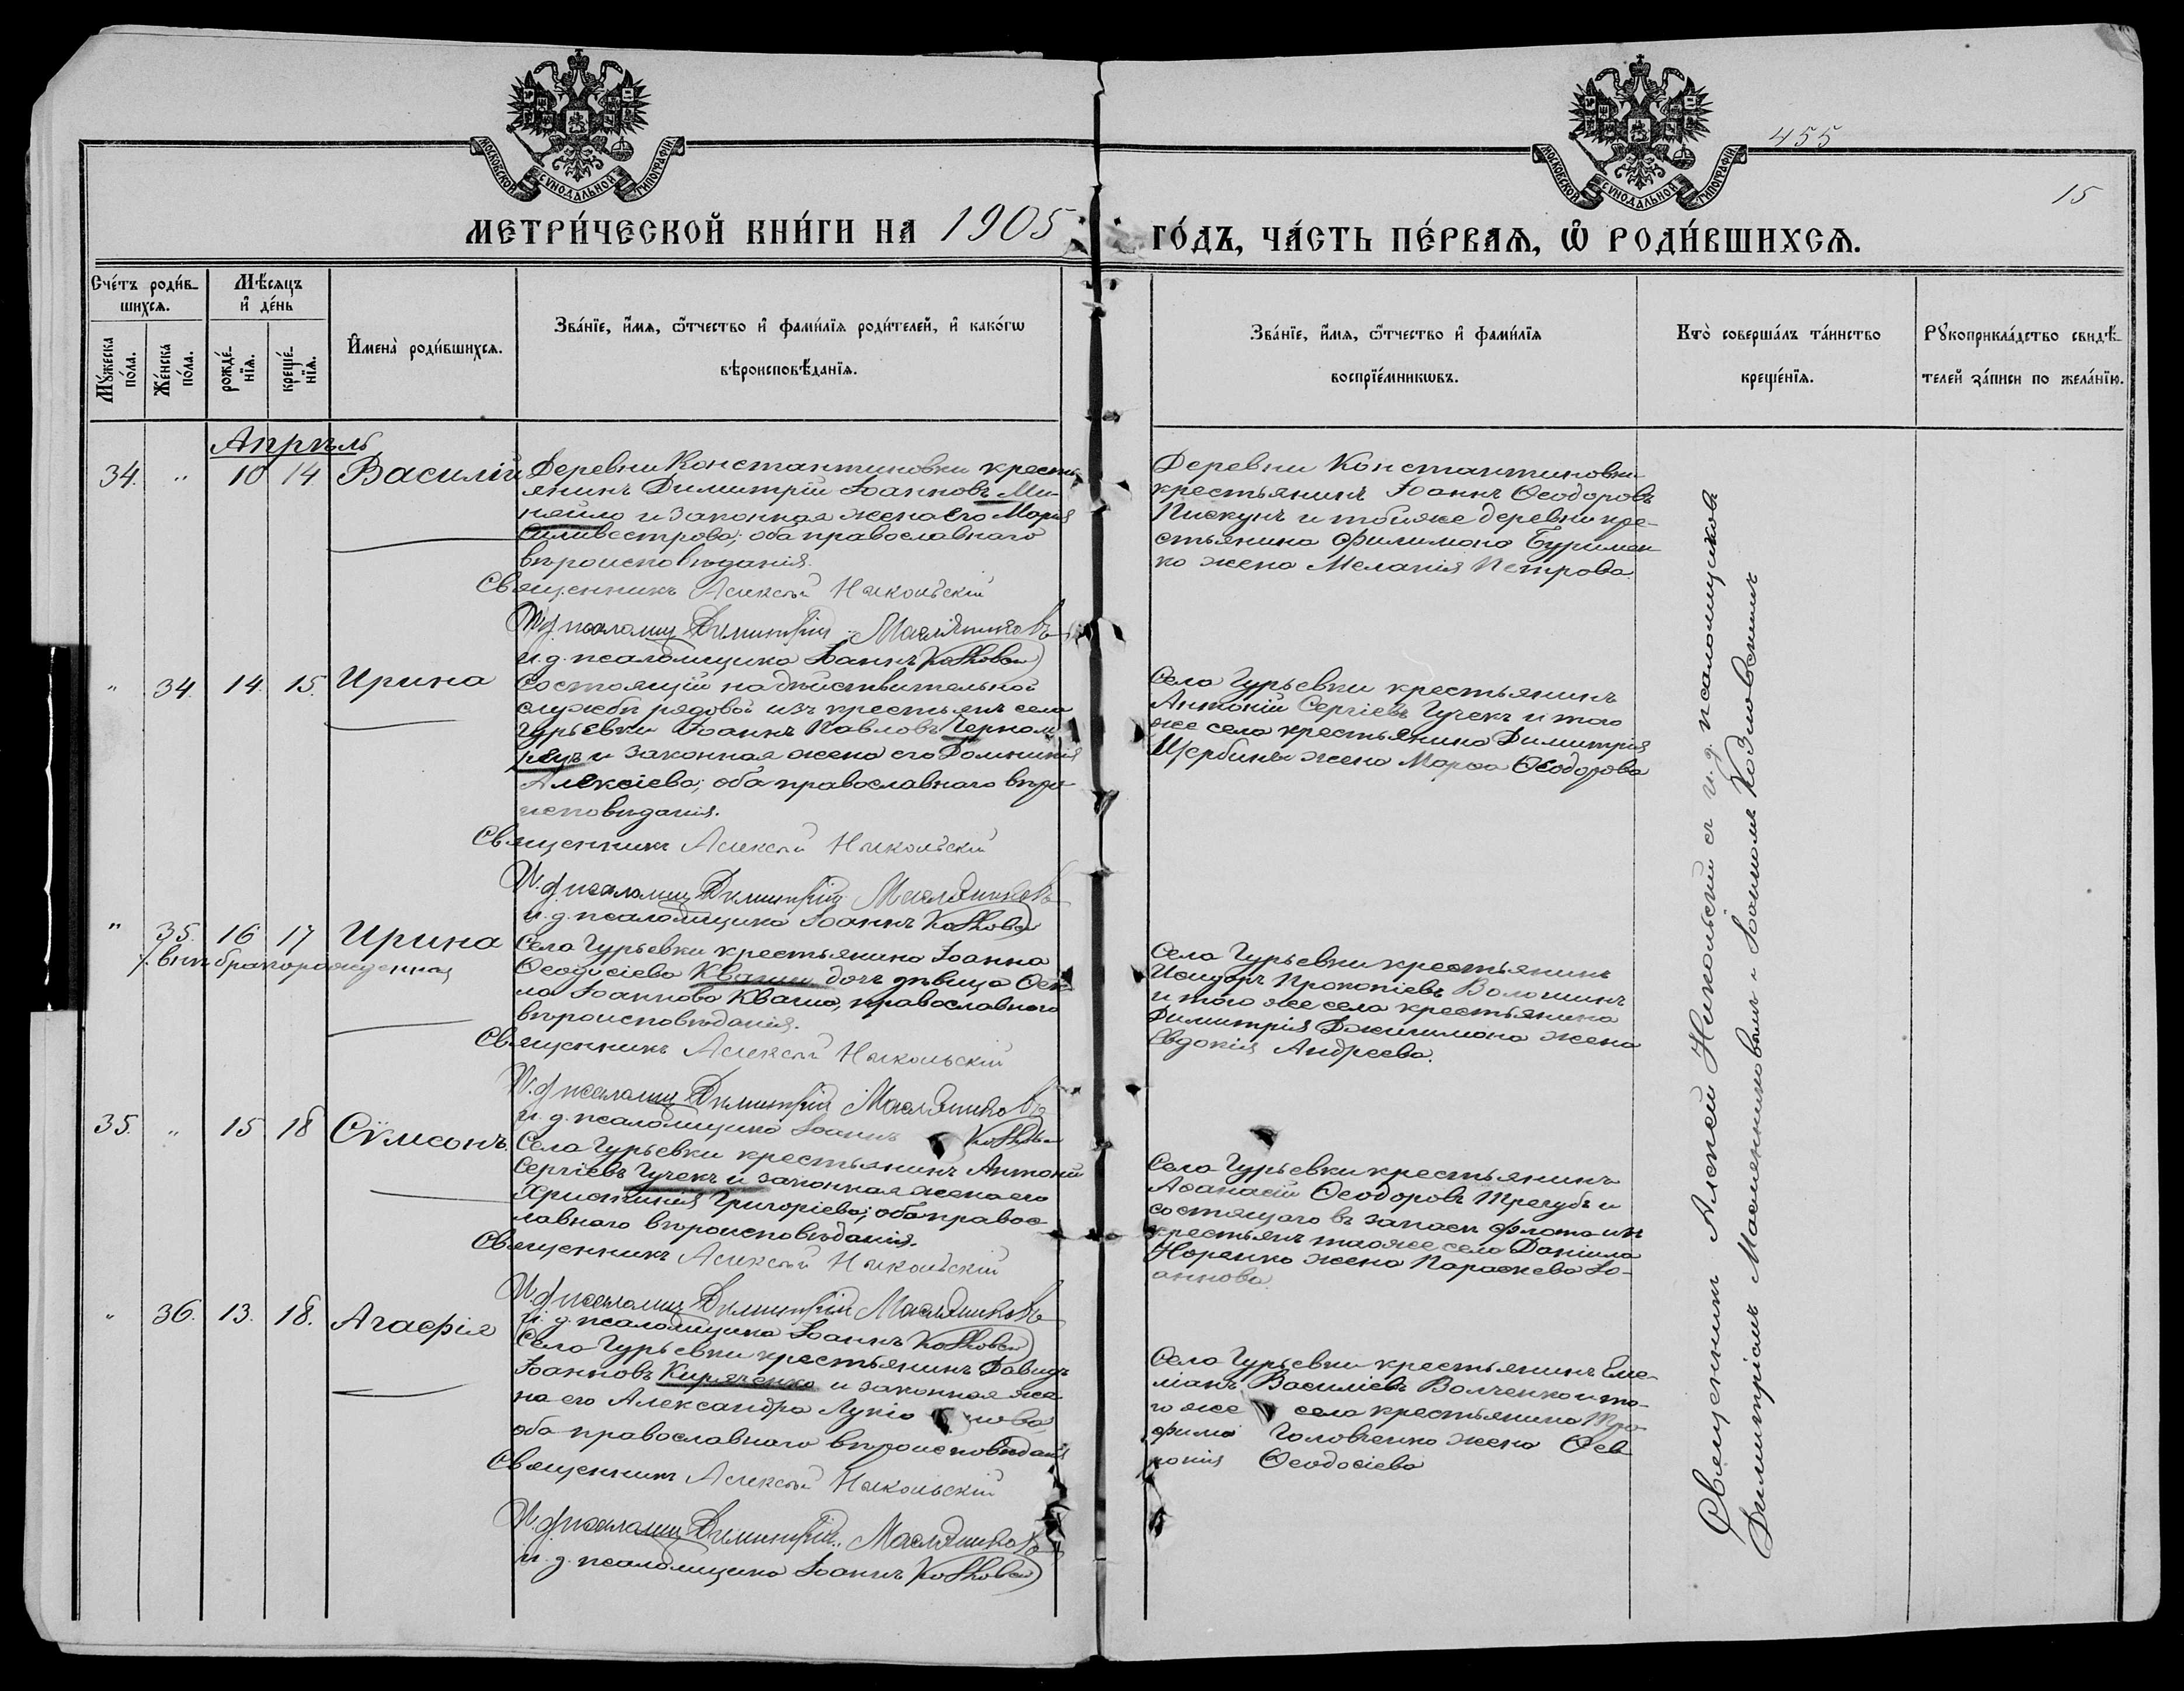 МОСКОВСКОЙ СѴНОДАЛЬНОЙ ТИПОГРАФІИ
МОСКОВСКОЙ СѴНОДАЛЬНОЙ ТИПОГРАФІИ
455
15
МЕТРИ́ЧЕСКОЙ КНИ́ГИ НА 1905 ГО́ДЪ, ЧА́СТЬ ПЕ́РВАѦ, Ѽ РОДИ́ВШИХСѦ.
Сче́тъ роди́в-
шихсѧ.
Мꙋ́жеска по́ла.
Же́нска по́ла.
Мѣ́сѧцъ
и҆ де́нь
рожде́-
нїѧ.
креще́-
нїѧ.
И҆мена̀ роди́вшихсѧ.
Зва́нїе, и҆́мѧ, ѻ҆́тчество и҆ фами́лїѧ роди́телей, и҆ како́гѡ
вѣроисповѣ́данїѧ.
Зва́нїе, и҆́мѧ, ѻ҆́тчество и҆ фами́лїѧ
воспрїе́мникѡвъ.
Кто̀ соверша́лъ та́инство
креще́нїѧ.
Рꙋкоприкла́дство свидѣ́-
телей за́писи по жела́нїю.
Апрѣль
34. " 10 14 Василій
Деревни Константиновки кресть-
янинъ Димитрій Іоанновъ Ми-
няйло и законная жена его Марія
Силивестрова; оба православнаго
вѣроисповѣданія.
Священникъ Алексѣй Никольскій
И.д. псаломщ. Димитрій Масляниковъ
и.д. псаломщика Іоаннъ Козловскій
Деревни Константиновки
крестьянинъ Іоаннъ Ѳеодоровъ
Пискунъ и той же деревни кре-
стьянина Филимона Буримен-
ко жена Меланія Петрова.
" 34. 14. 15. Ирина
Состоящій на дѣйствительной
службѣ рядовой изъ крестьянъ села
Гурьевки Іоаннъ Павловъ Черном-
рецъ и законная жена его Домникія
Алексіева; оба православнаго вѣро-
исповѣданія.
Священникъ Алексѣй Никольскій
И.д. псаломщ. Димитрій Масляниковъ
и.д. псаломщика Іоаннъ Козловскій
Села Гурьевки крестьянинъ
Антоній Сергіевъ Гучекъ и того
же села крестьянина Димитрія
Щербины жена Марѳа Ѳеодорова
" 35. 16 17 Ирина
внѣбрачорожденная
Села Гурьевки крестьянина Іоанна
Ѳеодосіева Кваши дочь дѣвица Ѳек-
ла Іоаннова Кваша, православнаго
вѣроисповѣданія.
Священникъ Алексѣй Никольскій
И.д. псаломщ. Димитрій Масляниковъ
и.д. псаломщика Іоаннъ Козловскій
Села Гурьевки крестьянинъ
Исидоръ Прокопіевъ Волошинъ
и того же села крестьянина
Димитрія Джилимана жена
Евдокія Андреева.
35. " 15 18 Сѵмеонъ.
Села Гурьевки крестьянинъ Антоній
Сергіевъ Гучекъ и законная жена его
Христинія Григоріева; оба правос-
лавнаго вѣроисповѣданія.
Священникъ Алексѣй Никольскій
И.д. псаломщ. Димитрій Масляниковъ
и.д. псаломщика Іоаннъ Козловскій
Села Гурьевки крестьянинъ
Аѳанасій Ѳеодоровъ Трегубъ и
состоящаго въ запасѣ флота изъ
крестьянъ того же села Даніила
Норенко жена Параскева Іо-
аннова
" 36. 13. 18. Агафія
Села Гурьевки крестьянинъ Давидъ
Іоанновъ Киряченко и законная же-
на его Александра Лукіанова
оба православнаго вѣроисповѣданія
Священникъ Алексѣй Никольскій
И.д. псаломщ. Димитрій Масляниковъ
и.д. псаломщика Іоаннъ Козловскій
Села Гурьевки крестьянинъ Еме-
ліанъ Василіевъ Волченко и то-
го же села крестьянина Тро-
фима Головченко жена Ѳев-
ронія Ѳеодосіева
Священникъ Алексѣй Никольскій съ и.д. псаломщиковъ
Димитріемъ Маслениковымъ и Іоанномъ Козловскимъ